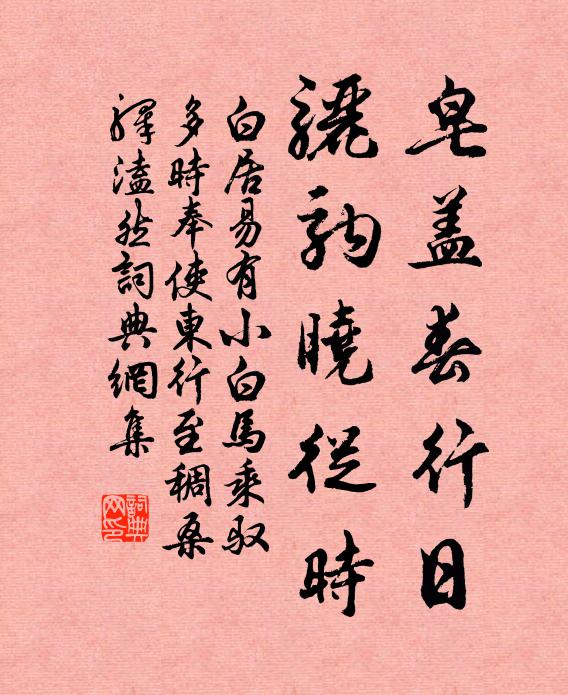 皂蓋春行日
驪駒曉從時
白居易有小白馬乘馭
多時奉使東行至稠桑
驛溘然詞典網集
詞典
网印